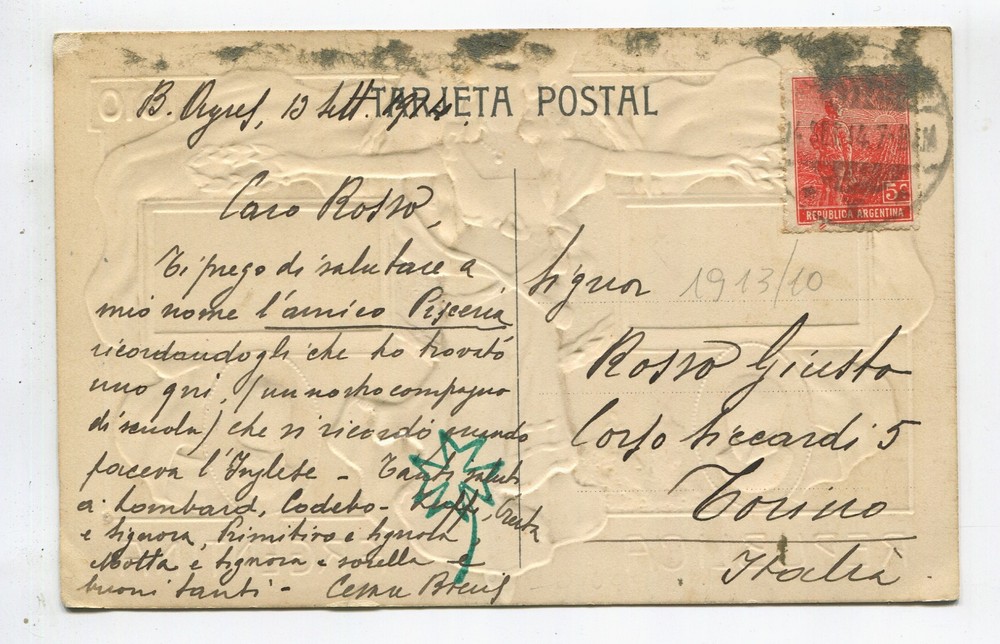 TARJETA POSTAL
B. Ayres, 13 Sett. 1914.
5c
REPUBLICA ARGENTINA
Caro Rosso,
Ti prego di salutare a
mio nome l'amico
ricordandogli che ho trovato
uno qui, (un nostro compagno
di scuola) che si ricordò quando
faceva l'Inglese - Tanti saluti
a Lombard, Codebo -
e Signora, Primitivo e Signora,
Motta e Signora e sorella e
buoni tanti -
Signor
1913/10
Rosso Giusto
Corso Siccardi 5
Torino
Italia